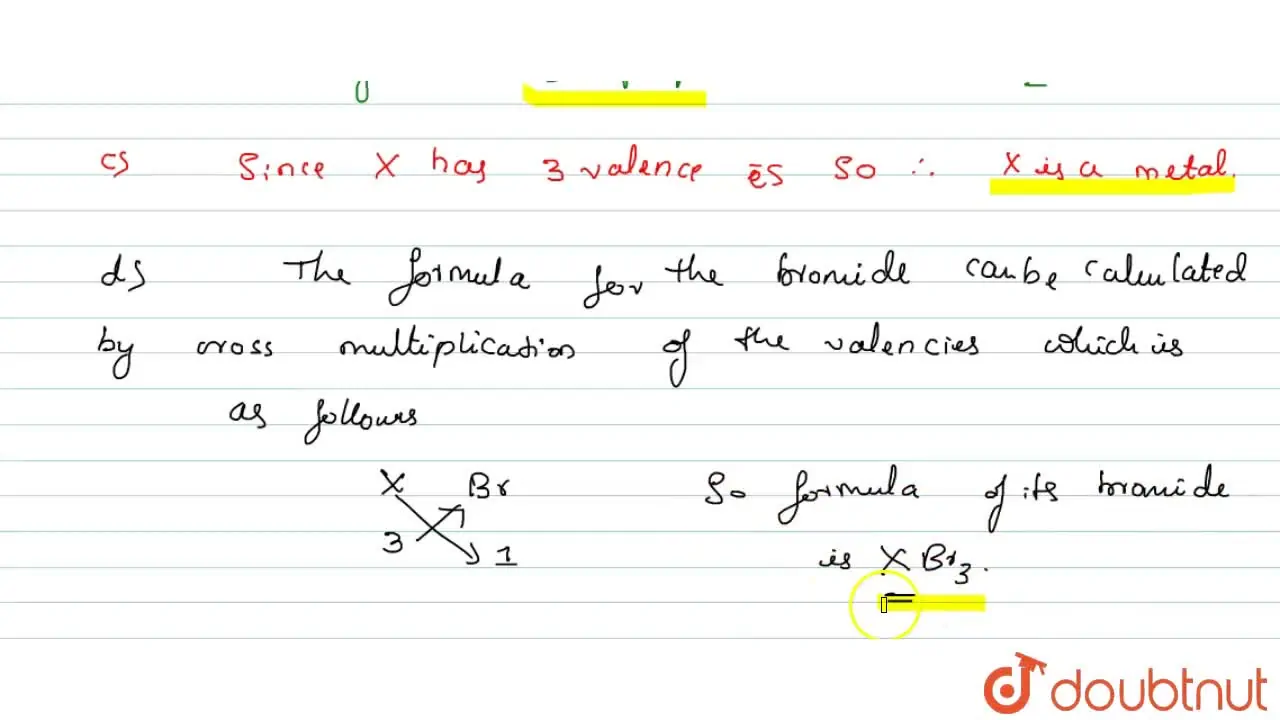 c) Since X has 3 valence ēs so ∴ X is a metal.
d) The formula for the bromide can be calculated
by cross multiplication of the valencies which is
as follows
X Br So formula of its bromide
3 1 is XBr₃.
doubtnut